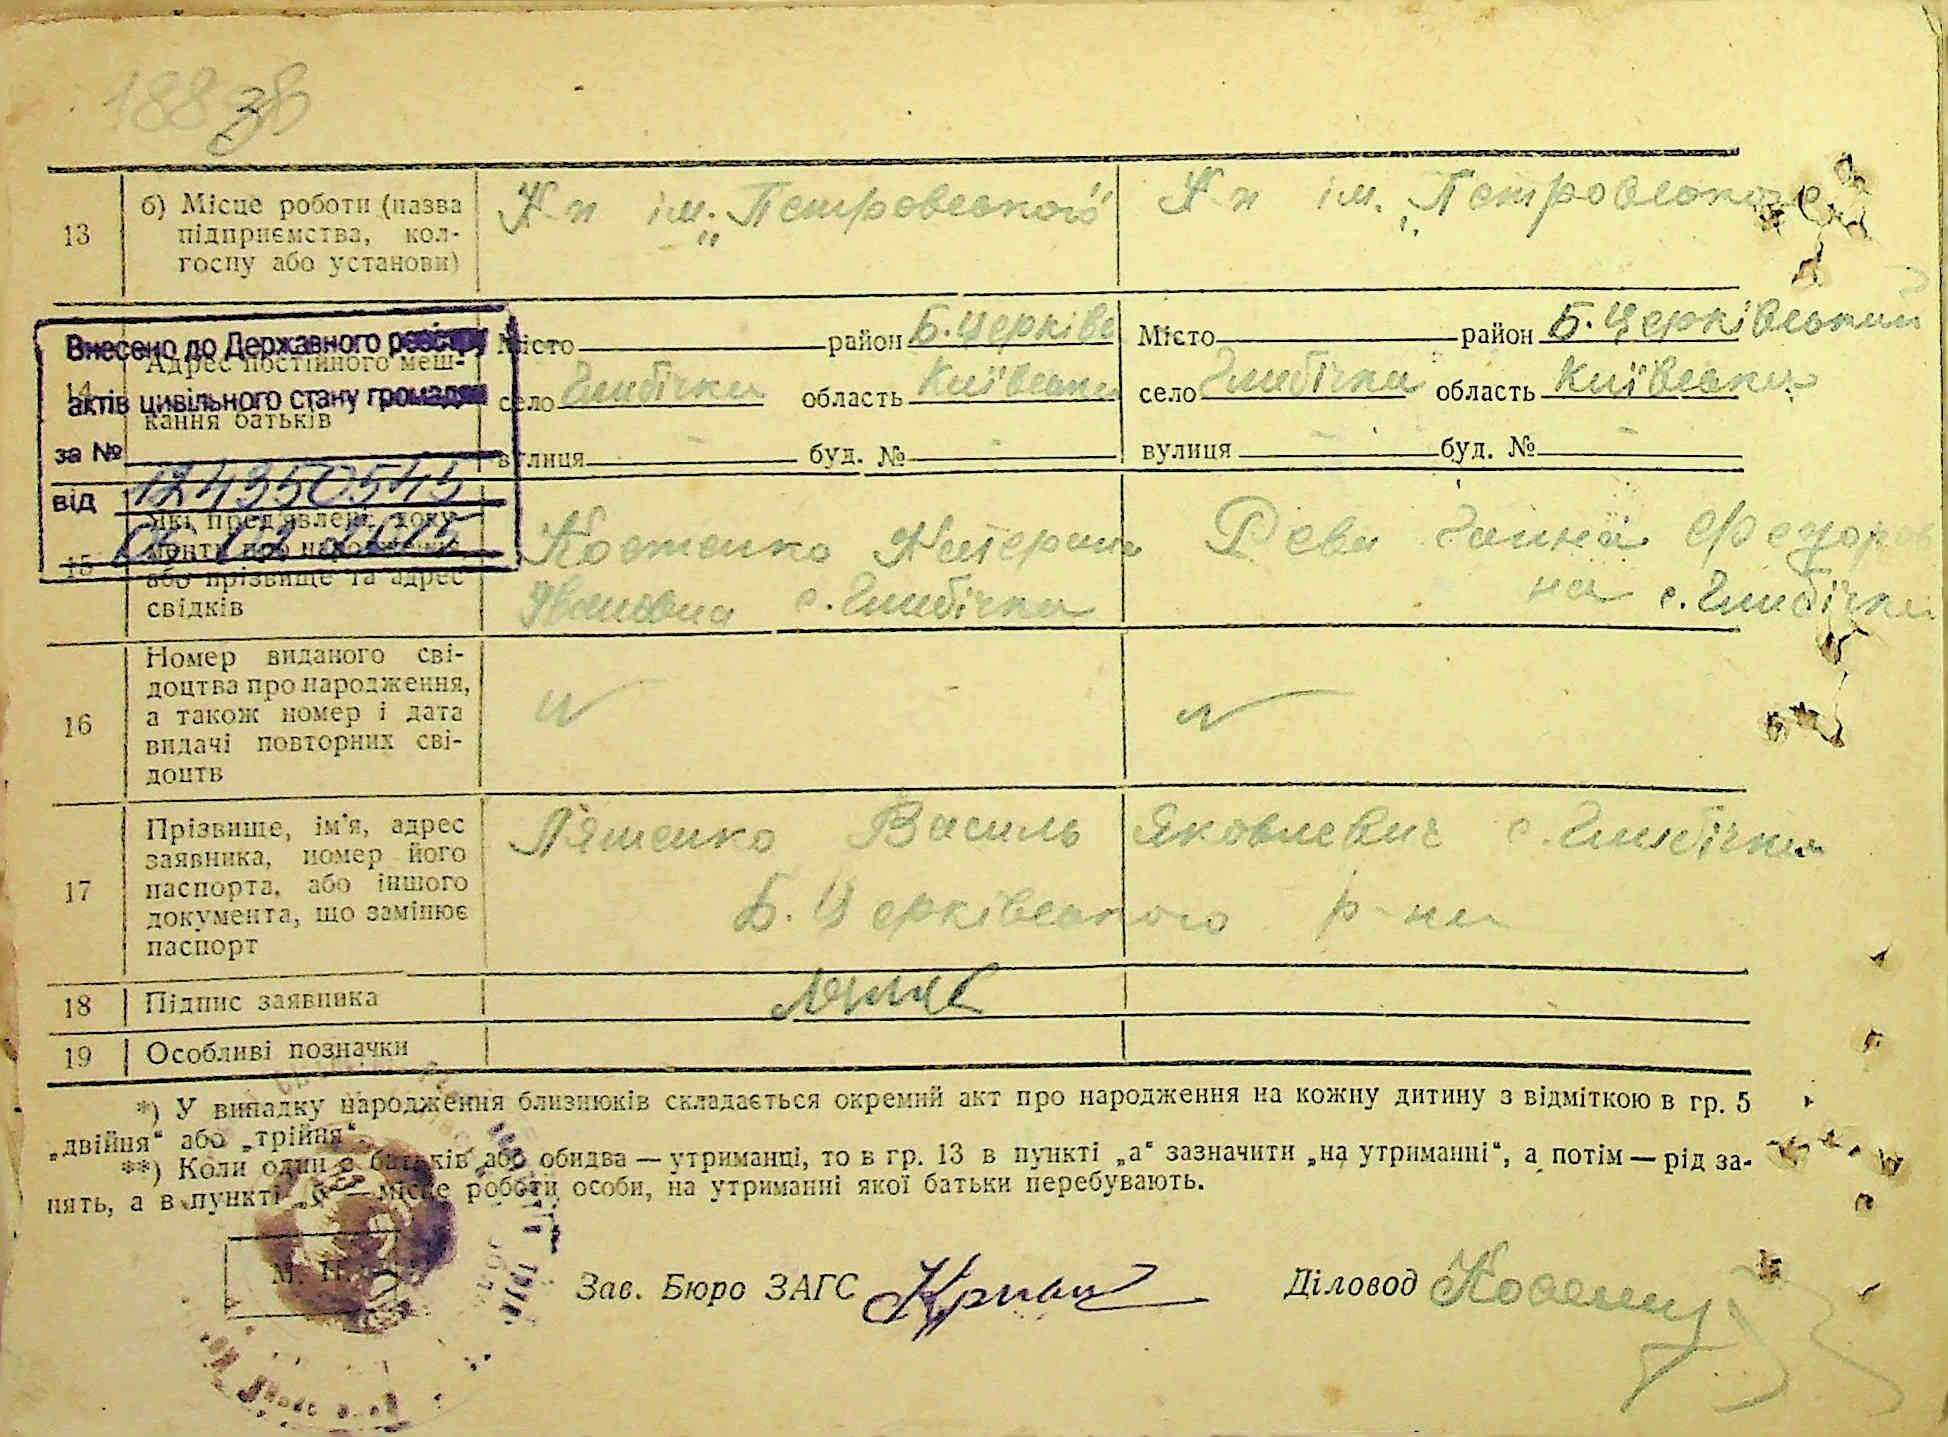 188 зв
13
б) Місце роботи (назва
підприємства, кол-
госпу або установи)
К-п ім. „Петровського"
К-п ім. „Петровського
Внесено до Державного реєстру
актів цивільного стану громадян
за №
124350545
від
14
Адрес постійного меш-
кання батьків
Місто район Б.Церківс
село Глибічка область Київська
вулиця - буд. № -
Місто район Б.Церківський
село Глибічка область Київська
вулиця - буд. № -
15
які пред'явлені доку-
менти про народження
або прізвище та адрес
свідків
Костенко Катерина
Івановна с. Глибічка
Рева Ганна Федоров
на с. Глибічка
16
Номер виданого сві-
доцтва про народження,
а також номер і дата
видачі повторних сві-
доцтв
17
Прізвище, ім'я, адрес
заявника, номер його
паспорта, або іншого
документа, що замінює
паспорт
Ляшенко Василь Яковлевич с. Глибічка
Б. Церківського р-на
18
Підпис заявника
19
Особливі позначки
*) У випадку народження близнюків складається окремий акт про народження на кожну дитину з відміткою в гр. 5
„двійня“ або „трійня“.
**) Коли один з батьків або обидва — утриманці, то в гр. 13 в пункті „а“ зазначити „на утриманні“, а потім — рід за-
нять, а в пункті „б“ — місце роботи особи, на утриманні якої батьки перебувають.
М. П.
Зав. Бюро ЗАГС
Діловод